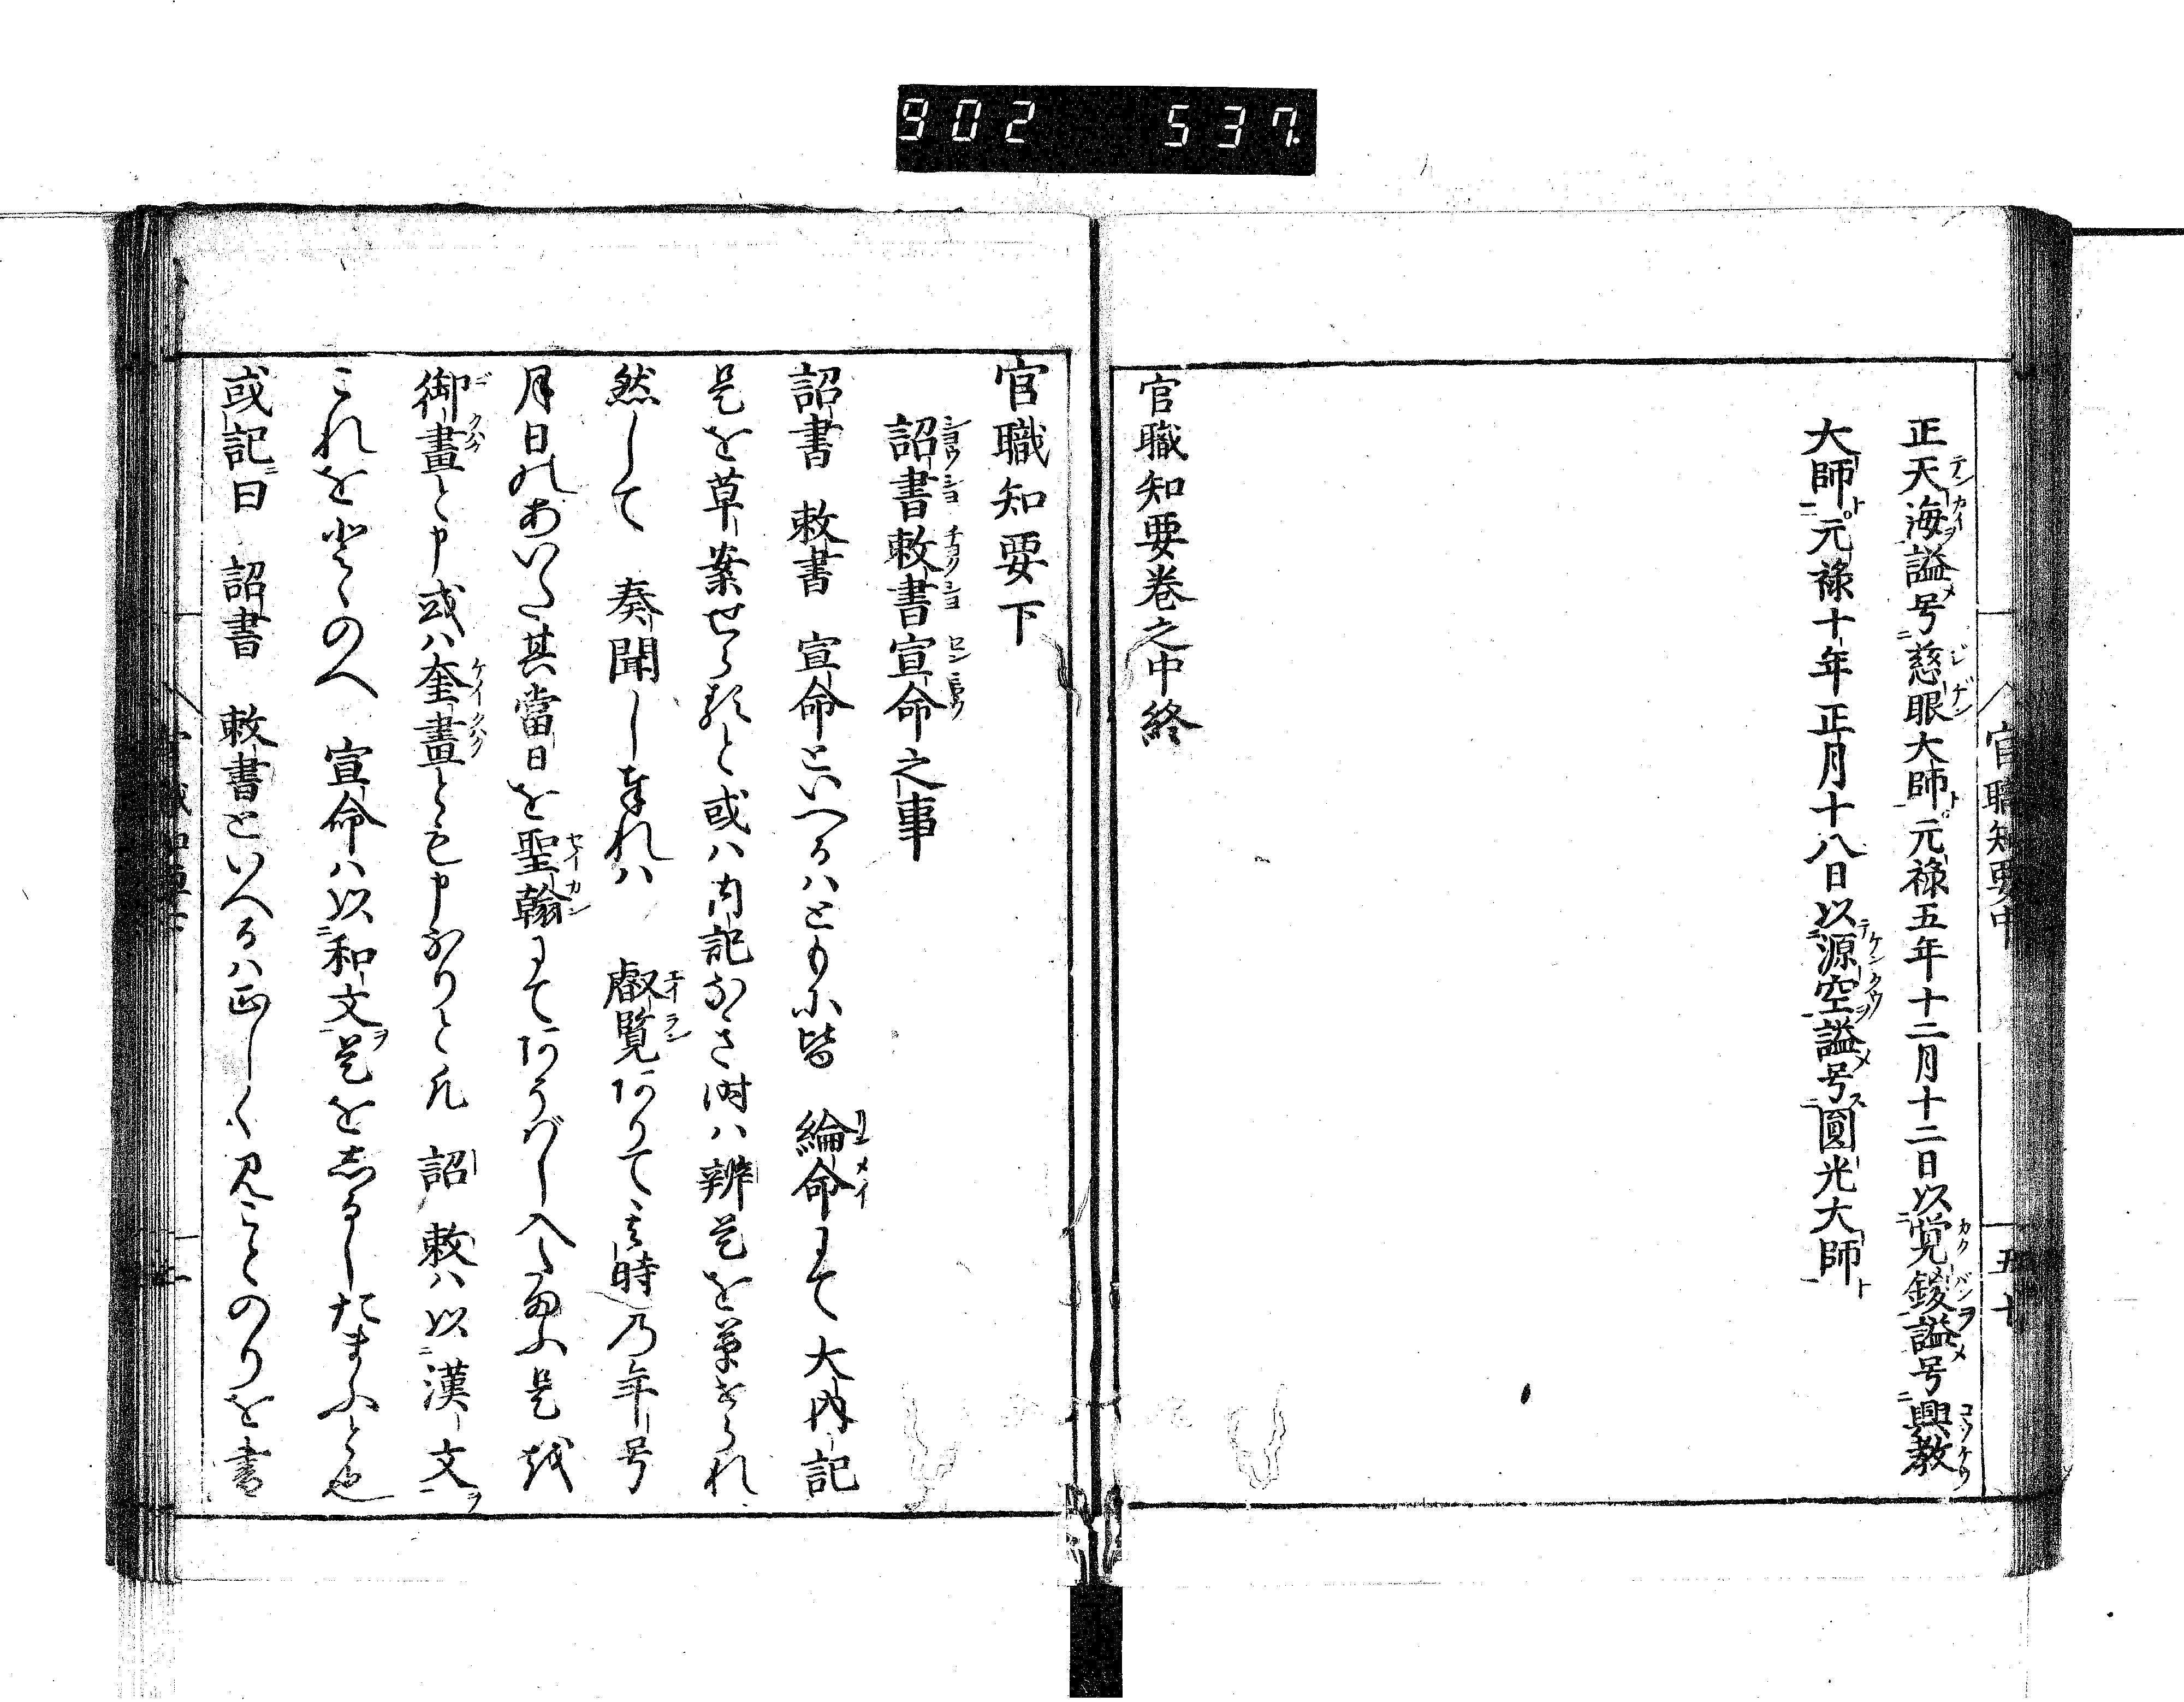 902 537.
官職知要中 五十
正天海謚号慈眼大師元禄五年十二月十二日以覚鑁謚号興教
大師元禄十年正月十八日以源空謚号圓光大師
官職知要巻之中終
官職知要下
詔書敕書宣命之事
詔書 敕書 宣命といへるハとも小皆 綸命にて大内記
是を草案せらるゝと或ハ内記なき時ハ辨是を草せられ
然して 奏聞し奉れハ 叡覧ありて其時乃年号
月日のあいた其當日を聖翰にてあそばし入たまふ是を
御畫と申或ハ奎畫とも申なりと凡 詔 敕ハ以漢文
これをとゝのへ 宣命ハ以和文是をしるしたまふと也
或記曰 詔書 敕書といへるハ正しくみことのりを書